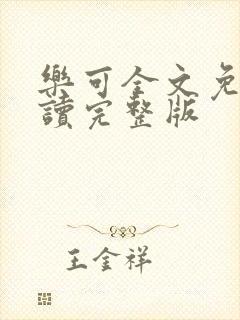 樂可全文免
讀完整版
王金祥